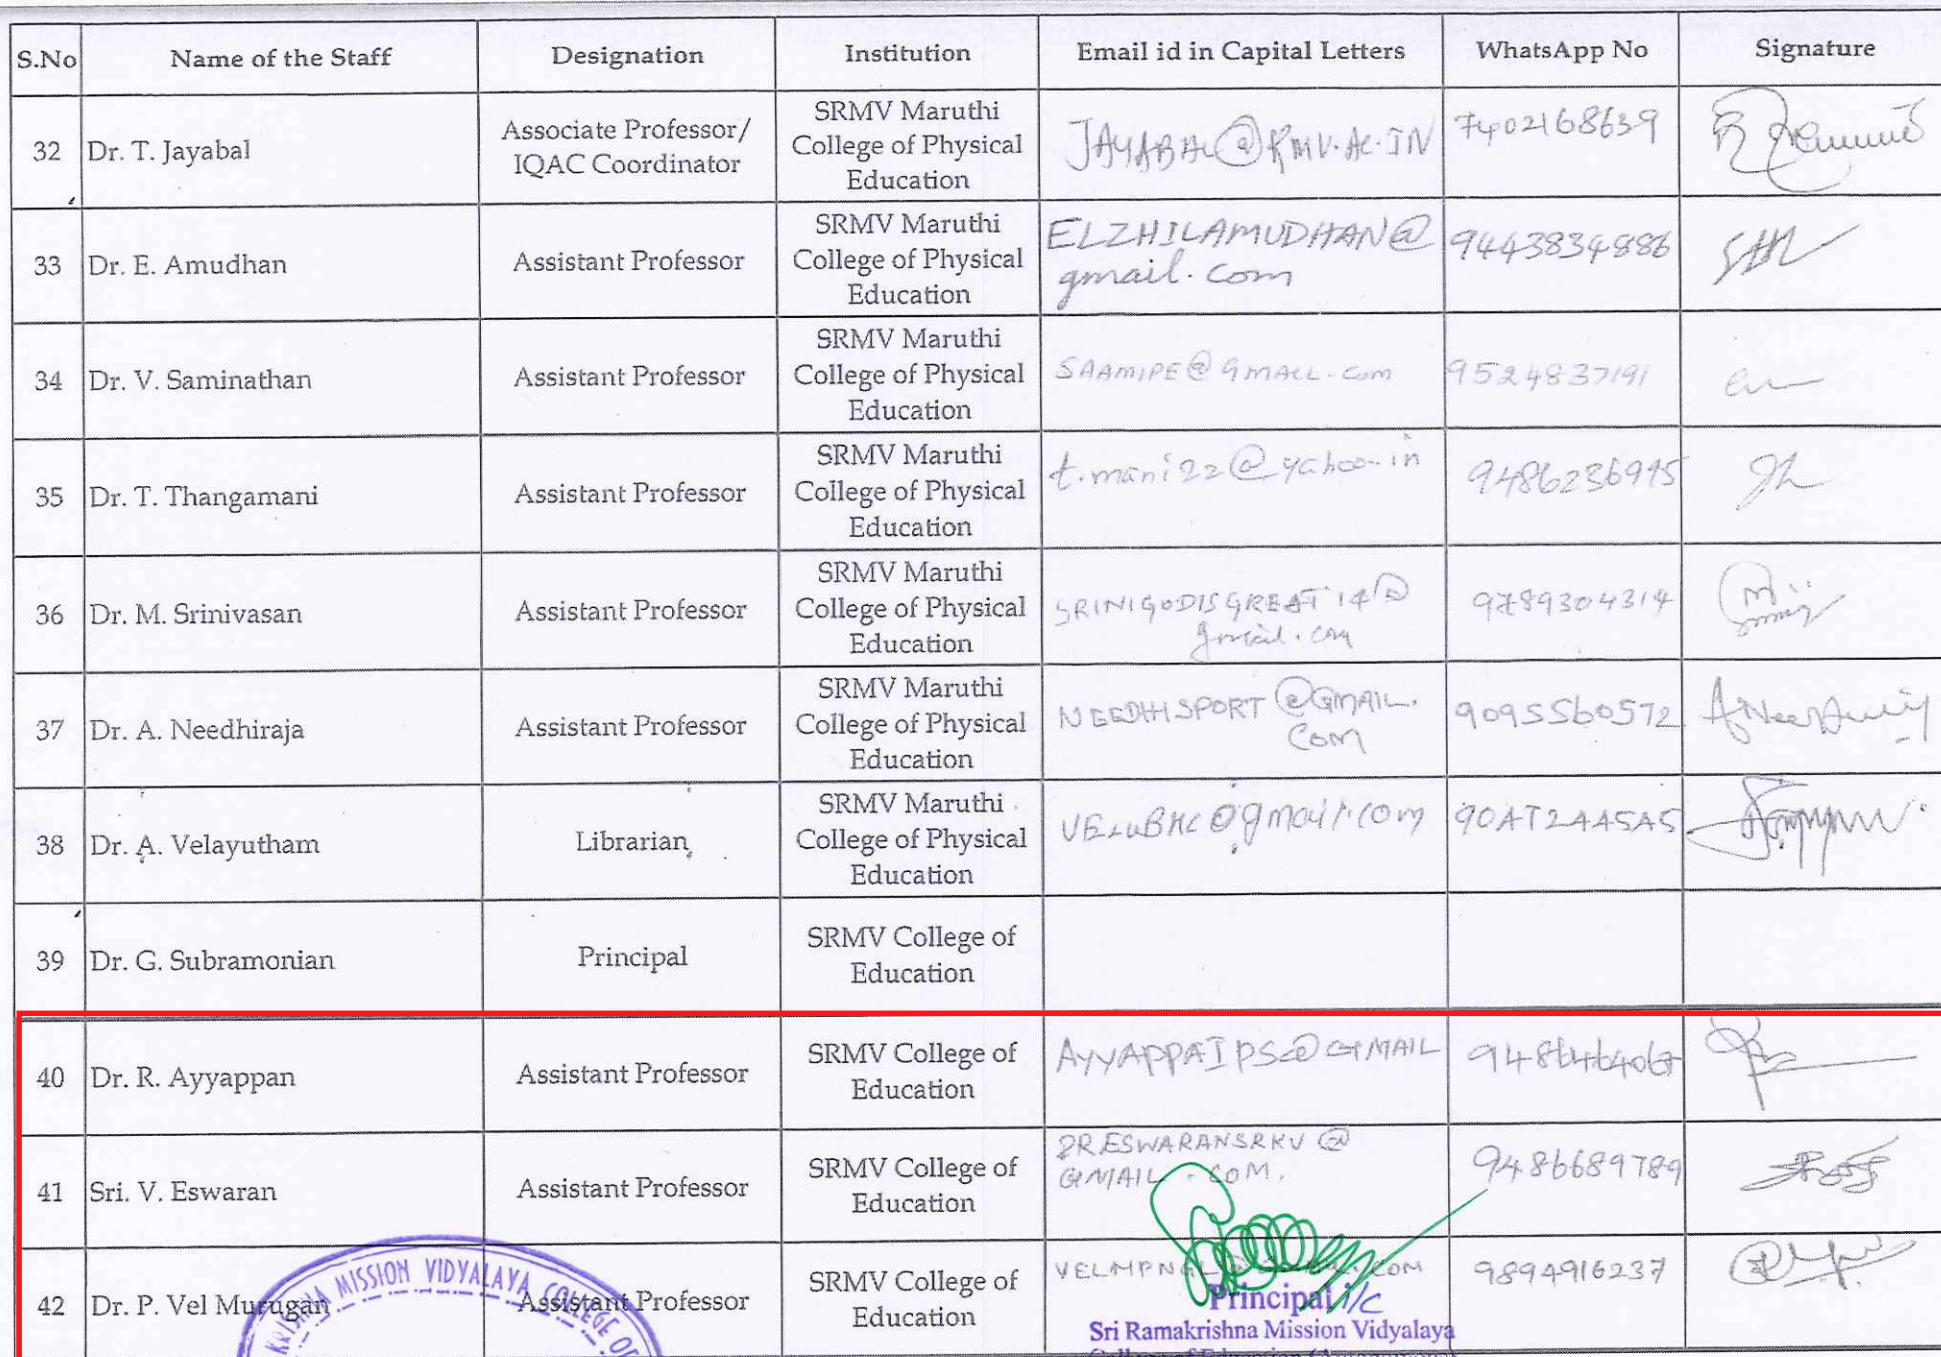 S.No Name of the Staff Designation Institution Email id in Capital Letters WhatsApp No Signature
32 Dr. T. Jayabal Associate Professor/ IQAC Coordinator SRMV Maruthi College of Physical Education JAYABAL@RMV.AC.IN 7402168639
33 Dr. E. Amudhan Assistant Professor SRMV Maruthi College of Physical Education ELZHILAMUDHAN@ gmail.com 9443834886
34 Dr. V. Saminathan Assistant Professor SRMV Maruthi College of Physical Education SAAMIPE@gmail.com 9524837191
35 Dr. T. Thangamani Assistant Professor SRMV Maruthi College of Physical Education t.mani22@yahoo.in 9486236995
36 Dr. M. Srinivasan Assistant Professor SRMV Maruthi College of Physical Education SRINIGODISGREAT14@ gmail.com 9789304314
37 Dr. A. Needhiraja Assistant Professor SRMV Maruthi College of Physical Education NEEDHISPORT@GMAIL. COM 9095560572
38 Dr. A. Velayutham Librarian SRMV Maruthi College of Physical Education @gmail.com
39 Dr. G. Subramonian Principal SRMV College of Education
40 Dr. R. Ayyappan Assistant Professor SRMV College of Education AYYAPPAIPS@GMAIL
41 Sri. V. Eswaran Assistant Professor SRMV College of Education GMAIL.COM. 9486689789
42 Dr. P. Vel Murugan Assistant Professor SRMV College of Education 9894916237
KRISHNA MISSION VIDYALAYA COLLEGE OF
Principal i/c
Sri Ramakrishna Mission Vidyalaya